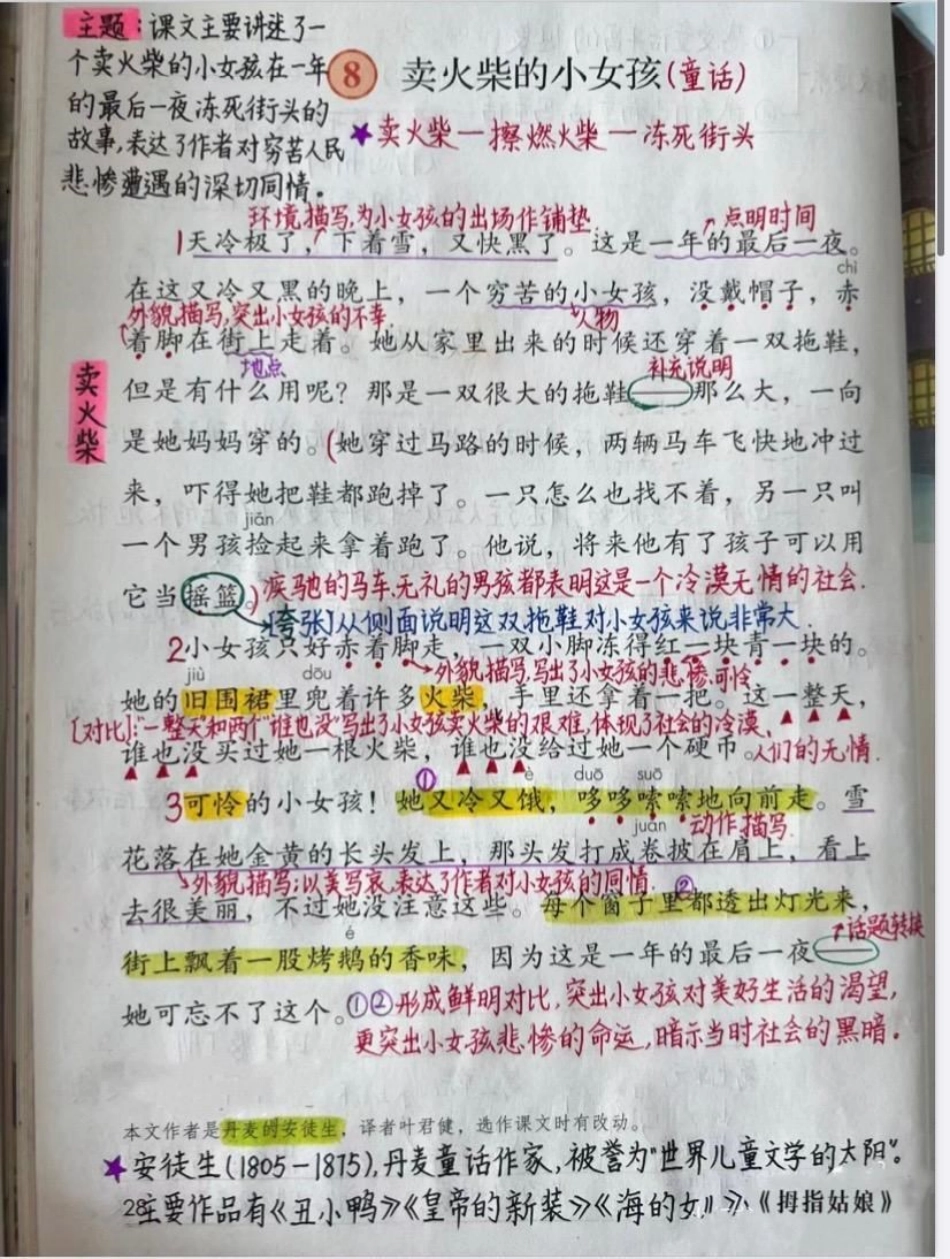 主题:课文主要讲述了一
个卖火柴的小女孩在一年
的最后一夜冻死街头的
故事,表达了作者对穷苦人民
悲惨遭遇的深切同情。
8 卖火柴的小女孩(童话)
★卖火柴—擦燃火柴—冻死街头
环境描写,为小女孩的出场作铺垫
点明时间
1天冷极了,下着雪,又快黑了。这是一年的最后一夜。
chì
在这又冷又黑的晚上,一个穷苦的小女孩,没戴帽子,赤
外貌描写,突出小女孩的不幸
人物
着脚在街上走着。她从家里出来的时候还穿着一双拖鞋,
地点
补充说明
卖火柴
但是有什么用呢?那是一双很大的拖鞋——那么大,一向
是她妈妈穿的。(她穿过马路的时候,两辆马车飞快地冲过
来,吓得她把鞋都跑掉了。一只怎么也找不着,另一只叫
jiǎn
一个男孩捡起来拿着跑了。他说,将来他有了孩子可以用
它当摇篮。)疾驰的马车、无礼的男孩都表明这是一个冷漠无情的社会.
[夸张]从侧面说明这双拖鞋对小女孩来说非常大.
2小女孩只好赤着脚走,一双小脚冻得红一块青一块的。
外貌描写,写出了小女孩的悲惨、可怜
jiù dōu
她的旧围裙里兜着许多火柴,手里还拿着一把。这一整天,
[对比]:"一整天"和两个"谁也没"写出了小女孩卖火柴的艰难,体现了社会的冷漠、
谁也没买过她一根火柴,谁也没给过她一个硬币。人们的无情.
① è duō suō
3可怜的小女孩!她又冷又饿,哆哆嗦嗦地向前走。雪
juǎn 动作描写.
花落在她金黄的长头发上,那头发打成卷披在肩上,看上
外貌描写:以美写哀,表达了作者对小女孩的同情. ②
去很美丽,不过她没注意这些。每个窗子里都透出灯光来,
é 话题转换
街上飘着一股烤鹅的香味,因为这是一年的最后一夜——
她可忘不了这个。①②形成鲜明对比,突出小女孩对美好生活的渴望,
更突出小女孩悲惨的命运,暗示当时社会的黑暗.
本文作者是丹麦的安徒生,译者叶君健,选作课文时有改动。
★安徒生(1805—1875),丹麦童话作家,被誉为"世界儿童文学的太阳"。
28 主要作品有《丑小鸭》《皇帝的新装》《海的女儿》《拇指姑娘》